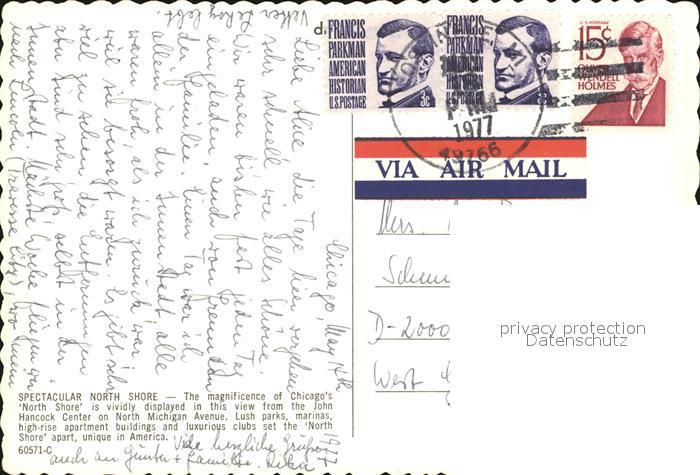 FRANCIS
PARKMAN
AMERICAN
HISTORIAN
U.S. POSTAGE
3c
FRANCIS
PARKMAN
AMERICAN
HISTORIAN
U.S. POSTAGE
U.S. POSTAGE
15c
OLIVER
WENDELL
HOLMES
1977
VIA AIR MAIL
Mrs.
D-2000
West
privacy protection
Datenschutz
Chicago, May 14th
1977
Liebe Anne, die Tage hier vergehen
sehr schnell wie alles Schöne.
Wir waren bisher fast jeden Tag
eingeladen und von Freunden
der Familie. Einen Tag war ich
allein in der Innenstadt, alle
waren froh, als ich zurück war,
weil sie besorgt waren. Es gibt sehr
viel zu sehen, die Entfernungen
aber sind sehr groß, selbst in der
Innenstadt. Nächste Woche fliegen wir
nach
Viele herzliche Grüße
auch an Günter + Familie.
SPECTACULAR NORTH SHORE — The magnificence of Chicago's
'North Shore' is vividly displayed in this view from the John
Hancock Center on North Michigan Avenue. Lush parks, marinas,
high-rise apartment buildings and luxurious clubs set the 'North
Shore' apart, unique in America.
60571-C